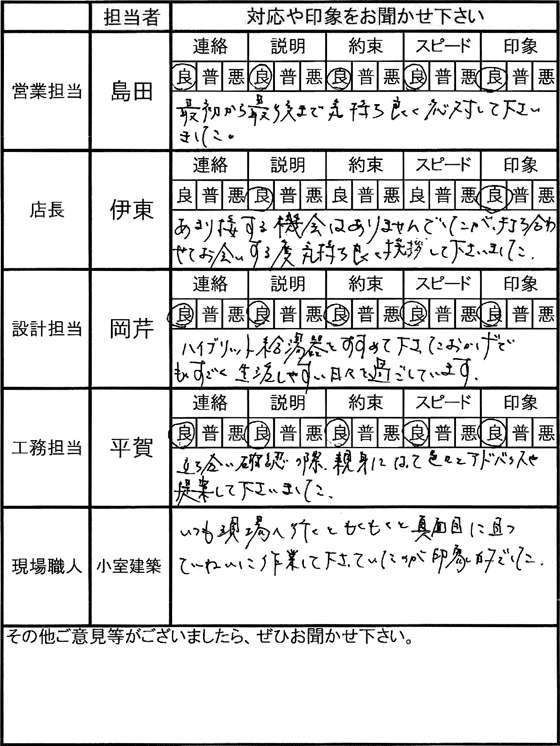 担当者 対応や印象をお聞かせ下さい
営業担当 島田
連絡 説明 約束 スピード 印象
良 普 悪 良 普 悪 良 普 悪 良 普 悪 良 普 悪
最初から最後まで気持ち良く応対して下さい
ました。
店長 伊東
連絡 説明 約束 スピード 印象
良 普 悪 良 普 悪 良 普 悪 良 普 悪 良 普 悪
あまり接する機会はありませんでしたが、打ち合わ
せでお会いする度気持ち良く挨拶して下さいました.
設計担当 岡芹
連絡 説明 約束 スピード 印象
良 普 悪 良 普 悪 良 普 悪 良 普 悪 良 普 悪
ハイブリット給湯器をすすめて下さったおかげで
ものすごく生活しやすい日々を過ごしています.
工務担当 平賀
連絡 説明 約束 スピード 印象
良 普 悪 良 普 悪 良 普 悪 良 普 悪 良 普 悪
立ち合い確認の際、親身になって色々とアドバイスや
提案して下さいました.
現場職人 小室建築
いつも現場へ行くともくもくと真面目に且つ
ていねいに作業して下さっていたのが印象的でした.
その他ご意見等がございましたら、ぜひお聞かせ下さい。